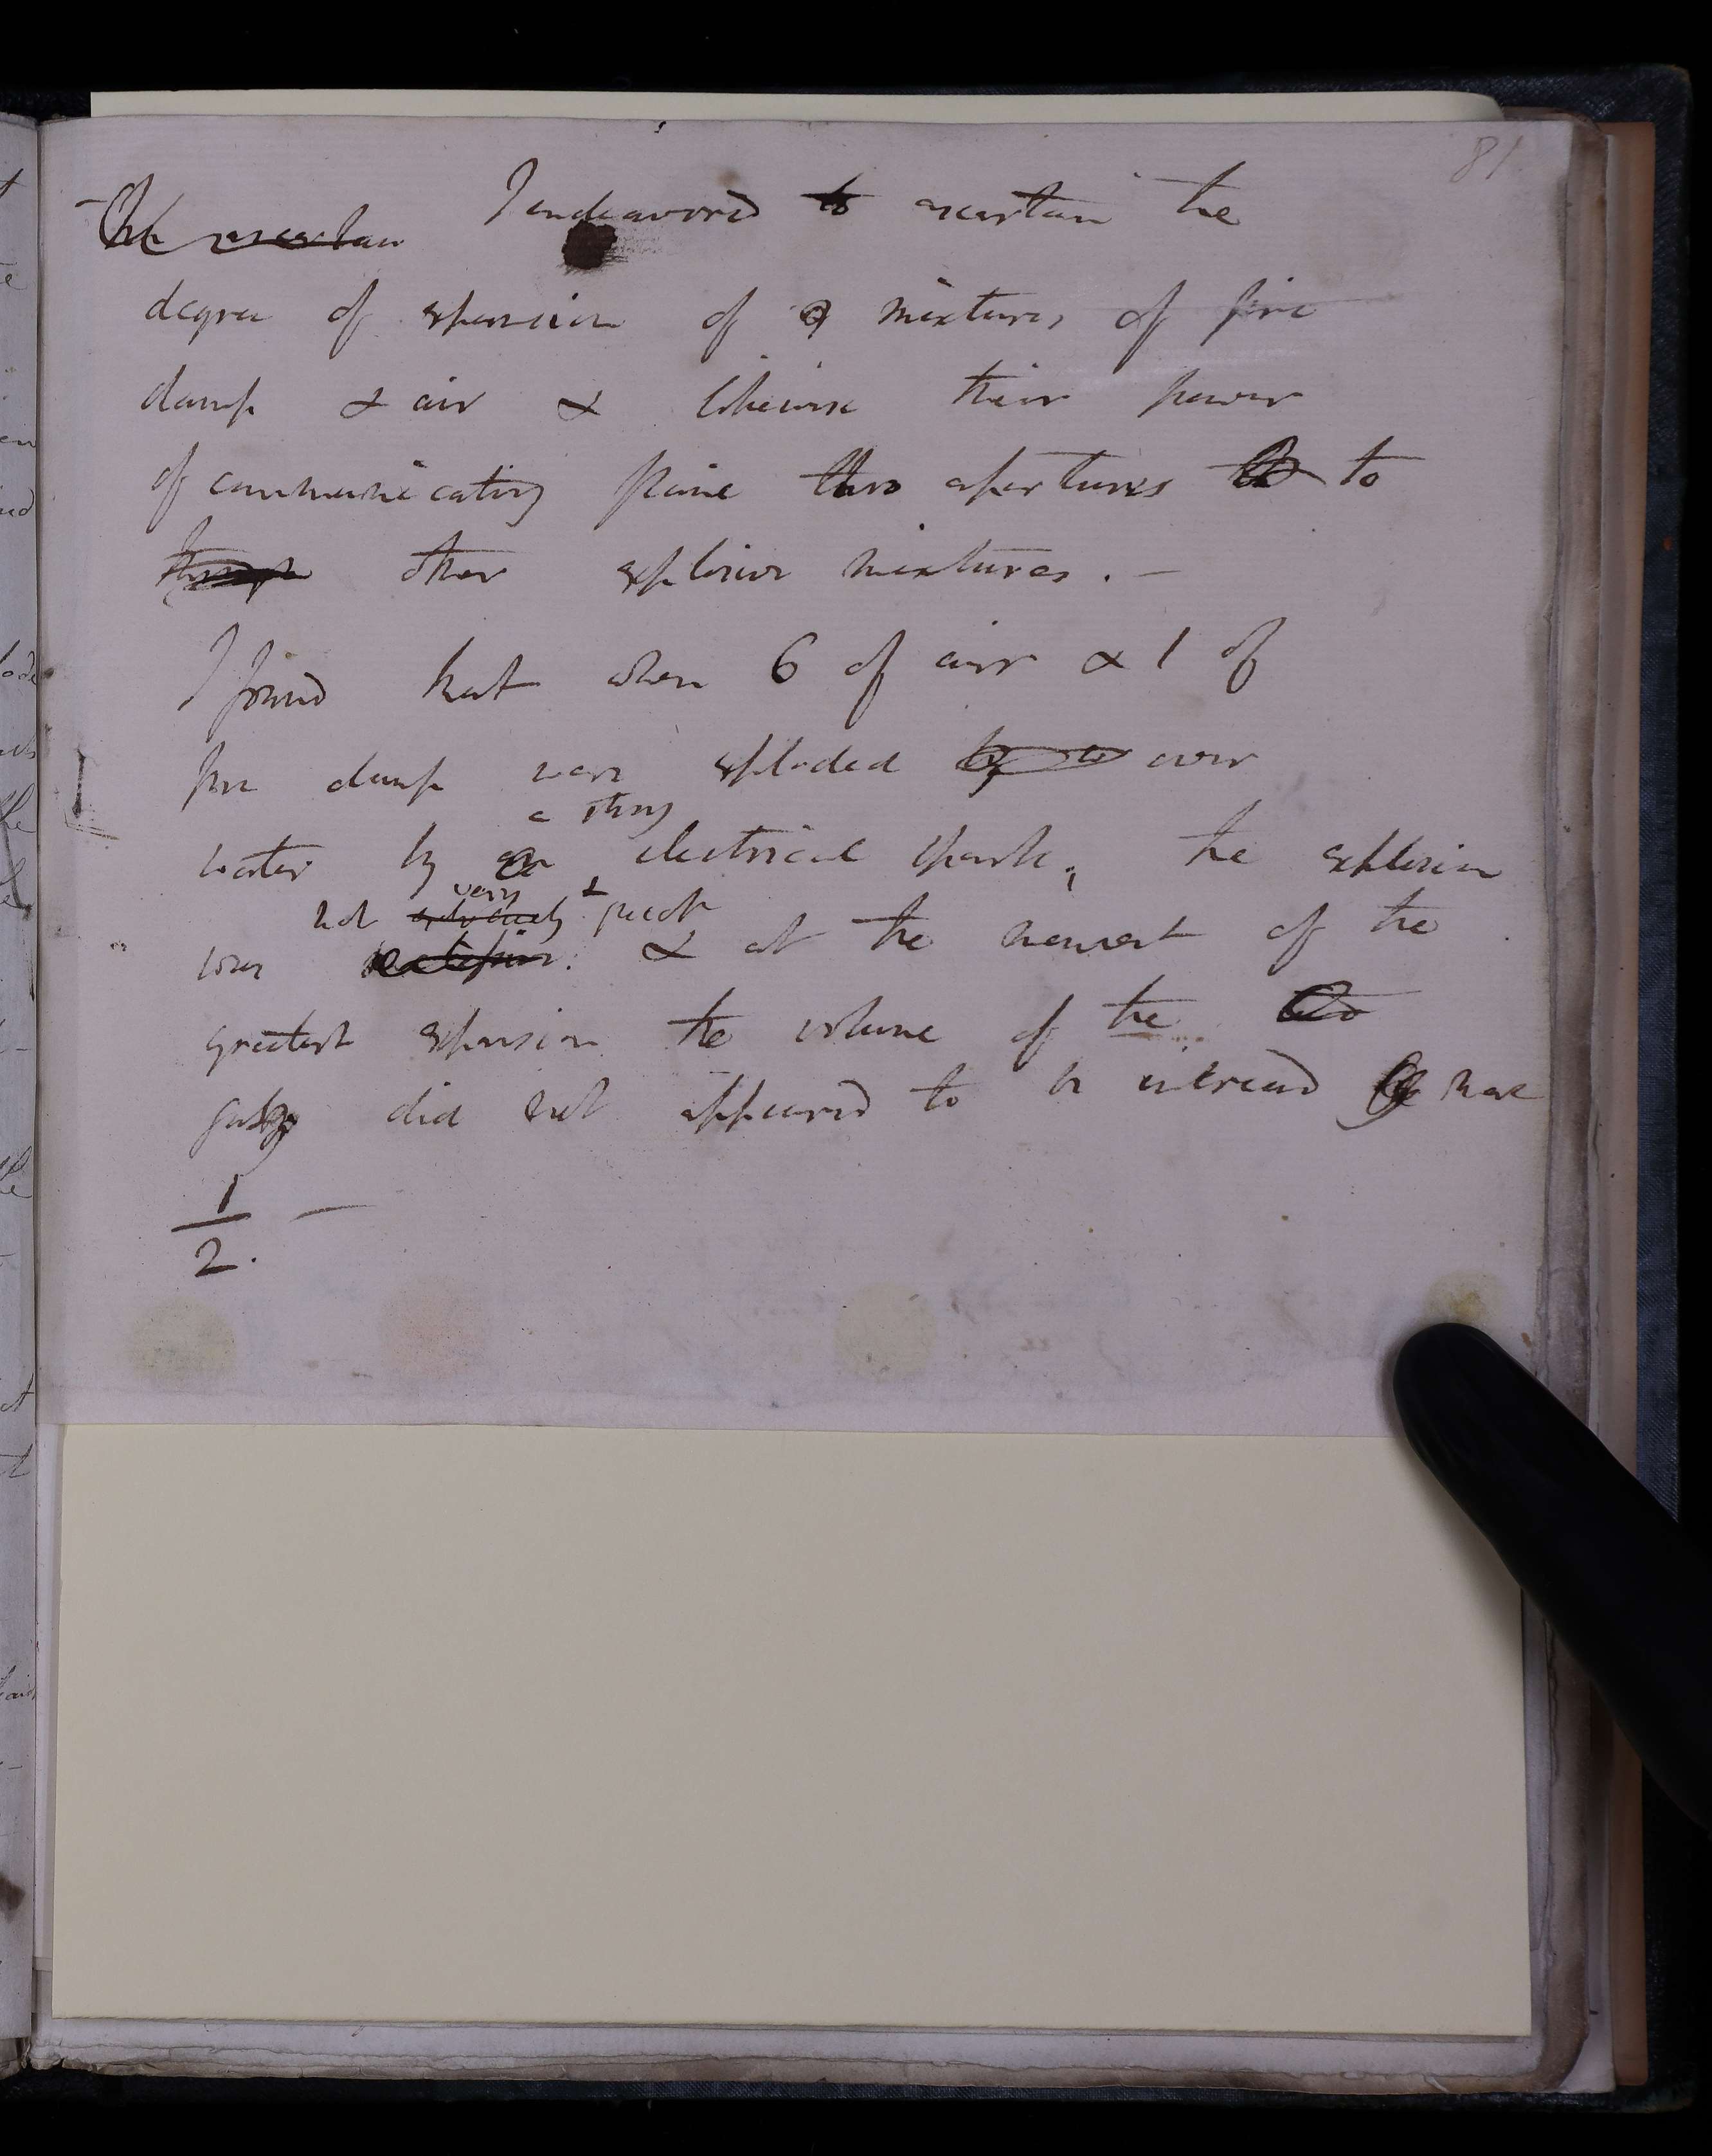 81
I endeavored to ascertain the
degree of expansion of mixtures of fire
damp & air & likewise their power
of communicating flame thro apertures to
other explosive mixtures. —
I found that when 6 of air & 1 of
fire damp were exploded over
water by a strong electrical spark, the explosion
was not very quick & at the moment of the
greatest expansion the volume of the
gas did not appeared to be increased more
1/2. —